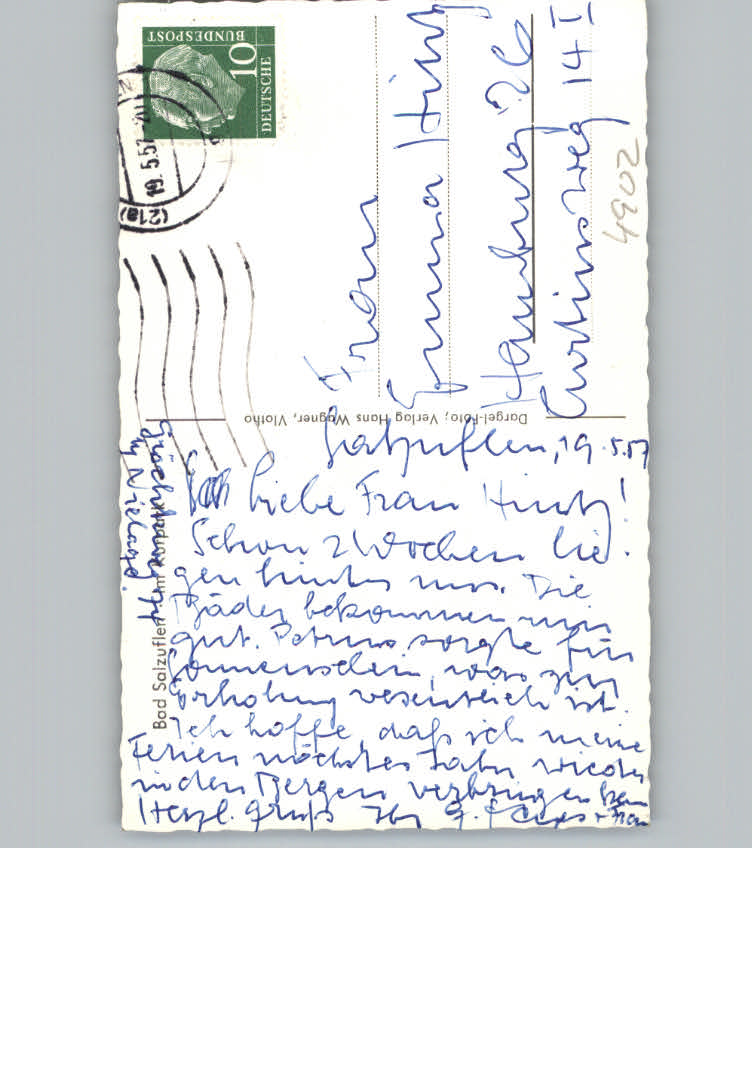 DEUTSCHE
BUNDESPOST
10
19.5.57
(21a)
Frau
Emma Hintz
Hamburg 26
Curtiusweg 14 I
4902
Dargel-Foto; Verlag Hans Wagner, Vlotho
Bad Salzuflen Im Kurpark
Salzuflen, 19.5.57
Liebe Frau Hintz!
Schon 2 Wochen lie-
gen hinter uns. Die
Bäder bekommen uns
gut. Petrus sorgte für
Sonnenschein, was zur
Erholung wesentlich ist.
Ich hoffe, daß ich meine
Ferien nächstes Jahr wieder
in den Bergen verbringen kann
Herzl. Gruß Ihr + Frau